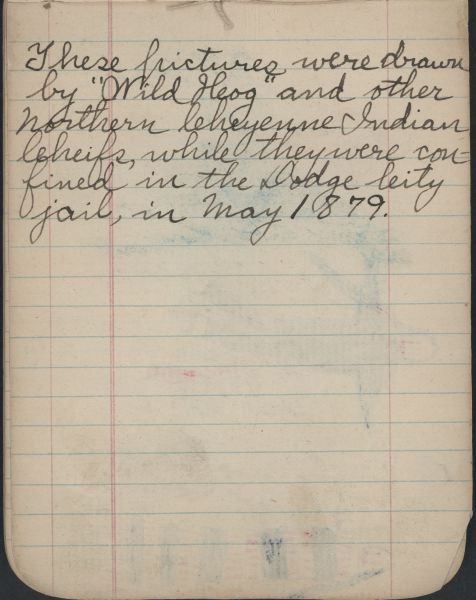 These pictures were drawn
by "Wild Hog" and other
Northern Cheyenne Indian
Cheifs, while they were con-
fined in the Dodge City
jail, in May 1879.